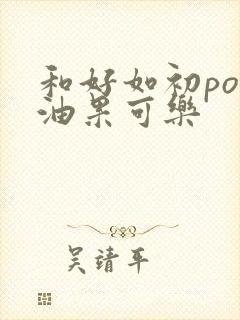 和好如初po
油果可樂
吴靖平